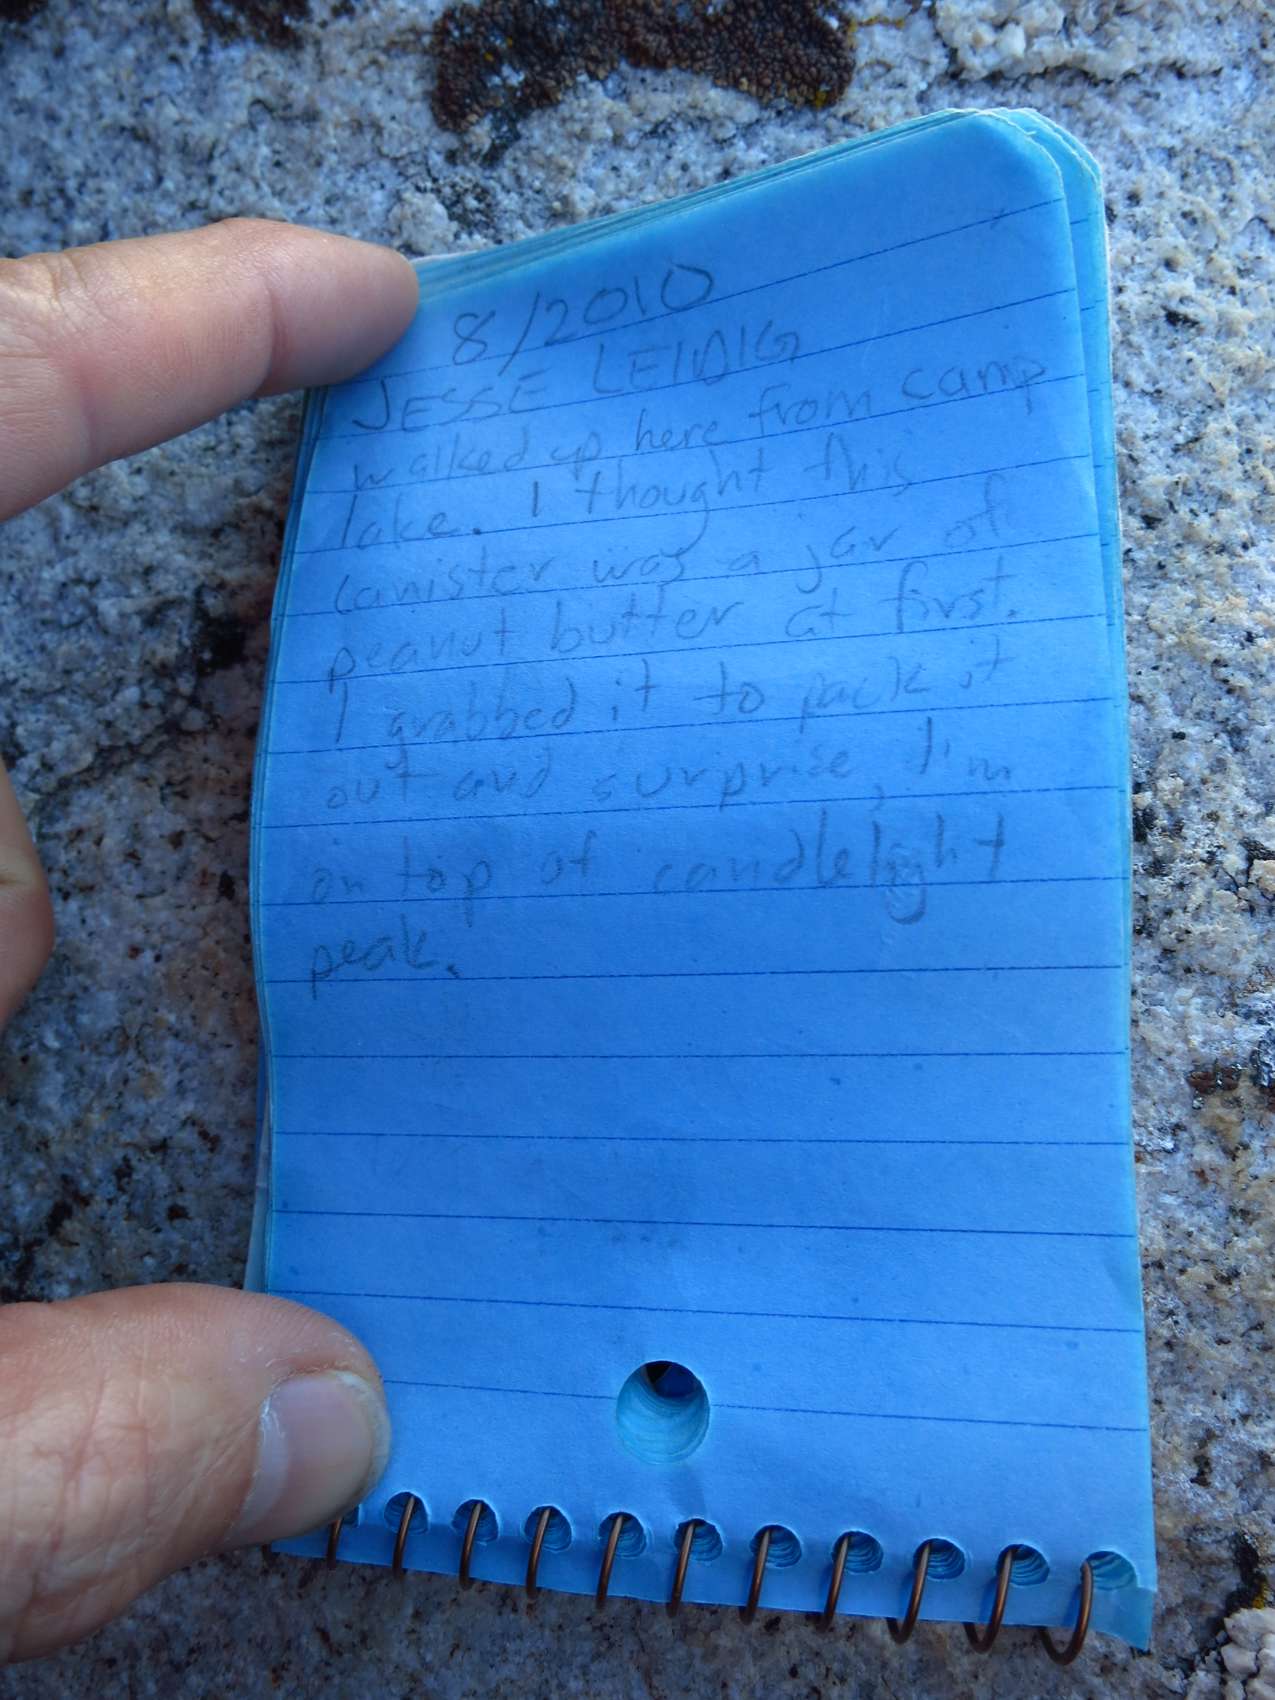 8/2010
JESSE LEIDIG
walked up here from camp
lake. I thought this
canister was a jar of
peanut butter at first.
I grabbed it to pack it
out and surprise, I'm
on top of candlelight
peak.